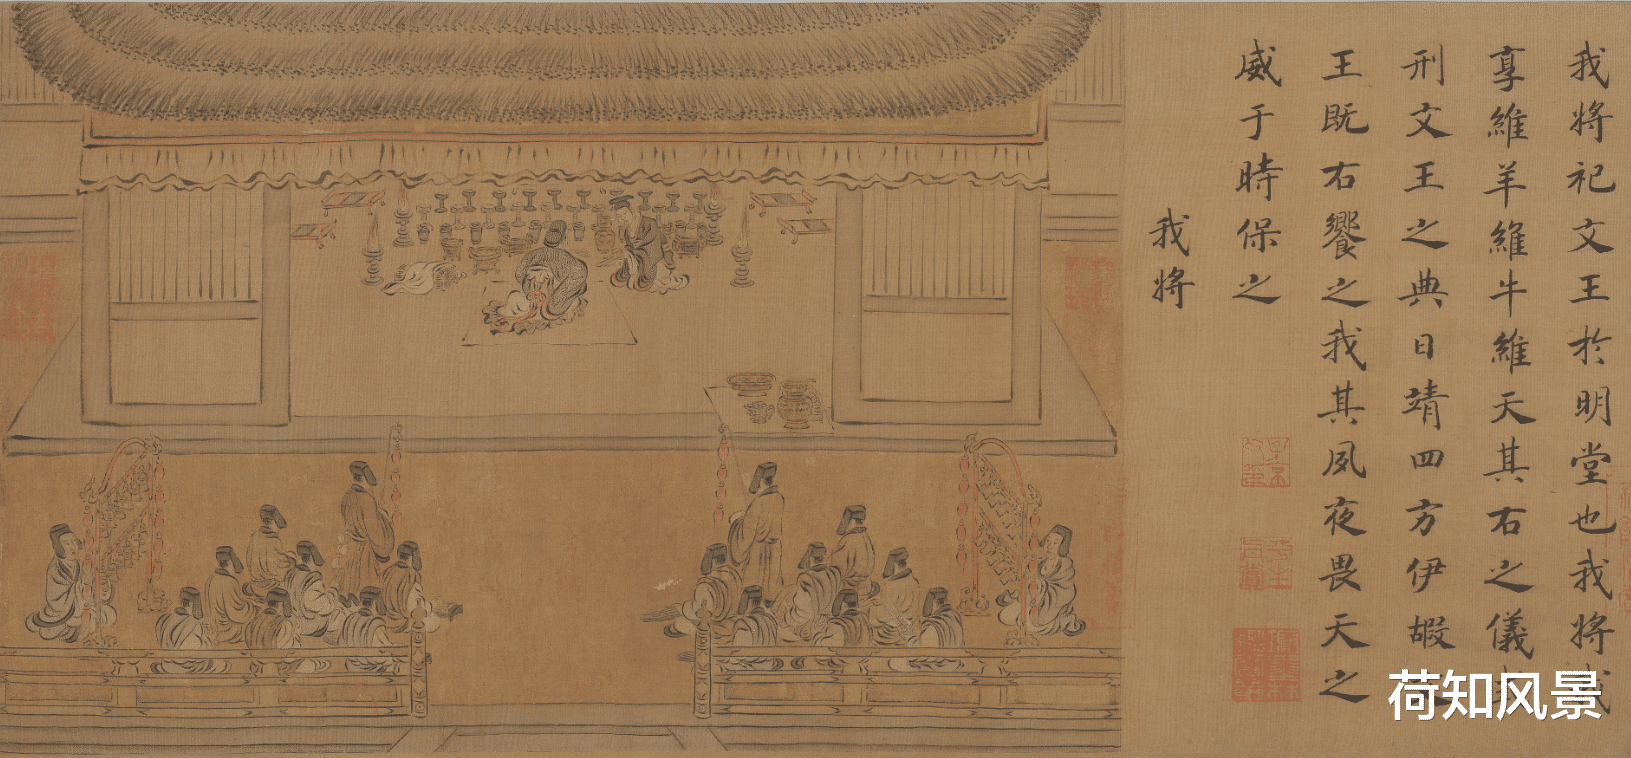 我將祀文王於明堂也我將我
享維羊維牛維天其右之儀
刑文王之典日靖四方伊嘏
王既右饗之我其夙夜畏天之
威于時保之
我將
荷知风景